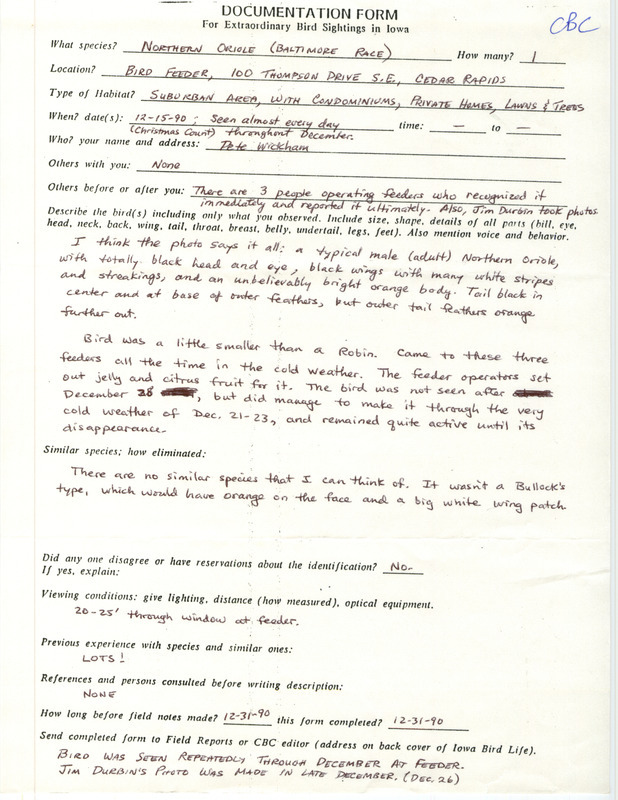 DOCUMENTATION FORM
For Extraordinary Bird Sightings in Iowa
CBC
What species? NORTHERN ORIOLE (BALTIMORE RACE) How many? 1
Location? BIRD FEEDER, 100 THOMPSON DRIVE S.E., CEDAR RAPIDS
Type of Habitat? SUBURBAN AREA, WITH CONDOMINIUMS, PRIVATE HOMES, LAWNS & TREES
When? date(s): 12-15-90 ; seen almost every day time: — to —
(Christmas Count) throughout December.
Who? your name and address: Pete Wickham
Others with you: None
Others before or after you: There are 3 people operating feeders who recognized it
immediately and reported it ultimately. Also, Jim Durbin took photos.
Describe the bird(s) including only what you observed. Include size, shape, details of all parts (bill, eye,
head, neck, back, wing, tail, throat, breast, belly, undertail, legs, feet). Also mention voice and behavior.
I think the photo says it all: a typical male (adult) Northern Oriole,
with totally black head and eye, black wings with many white stripes
and streakings, and an unbelievably bright orange body. Tail black in
center and at base of outer feathers, but outer tail feathers orange
further out.
Bird was a little smaller than a Robin. Came to these three
feeders all the time in the cold weather. The feeder operators set
out jelly and citrus fruit for it. The bird was not seen after
December 28, but did manage to make it through the very
cold weather of Dec. 21-23, and remained quite active until its
disappearance.
Similar species; how eliminated:
There are no similar species that I can think of. It wasn't a Bullock's
type, which would have orange on the face and a big white wing patch.
Did any one disagree or have reservations about the identification? No.
If yes, explain:
Viewing conditions: give lighting, distance (how measured), optical equipment.
20-25' through window at feeder.
Previous experience with species and similar ones:
LOTS!
References and persons consulted before writing description:
NONE
How long before field notes made? 12-31-90 this form completed? 12-31-90
Send completed form to Field Reports or CBC editor (address on back cover of Iowa Bird Life).
BIRD WAS SEEN REPEATEDLY THROUGH DECEMBER AT FEEDER.
JIM DURBIN'S PHOTO WAS MADE IN LATE DECEMBER. (DEC. 26)